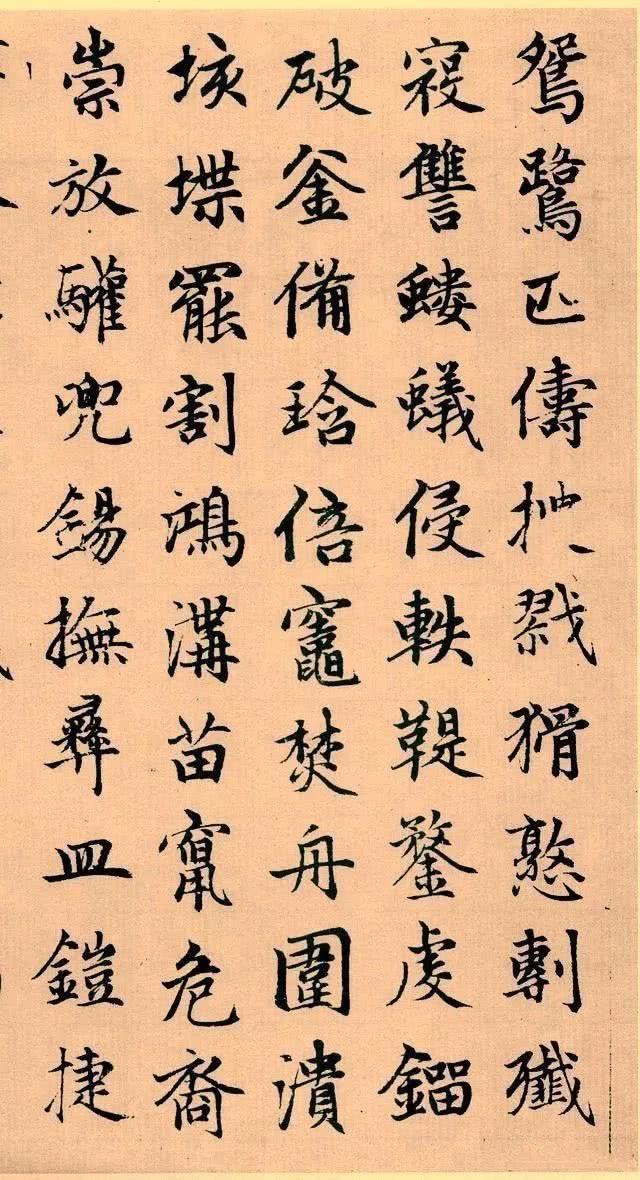 鴛鷺匹儔戮猾憝剸殲
寇讐螻蟻侵軼鞮鍪虔鎦
破釜備琀倍竈焚舟圍潰
垓堞罷割鴻溝苗竄危裔
崇放驩兜錫撫彝皿鎧捷